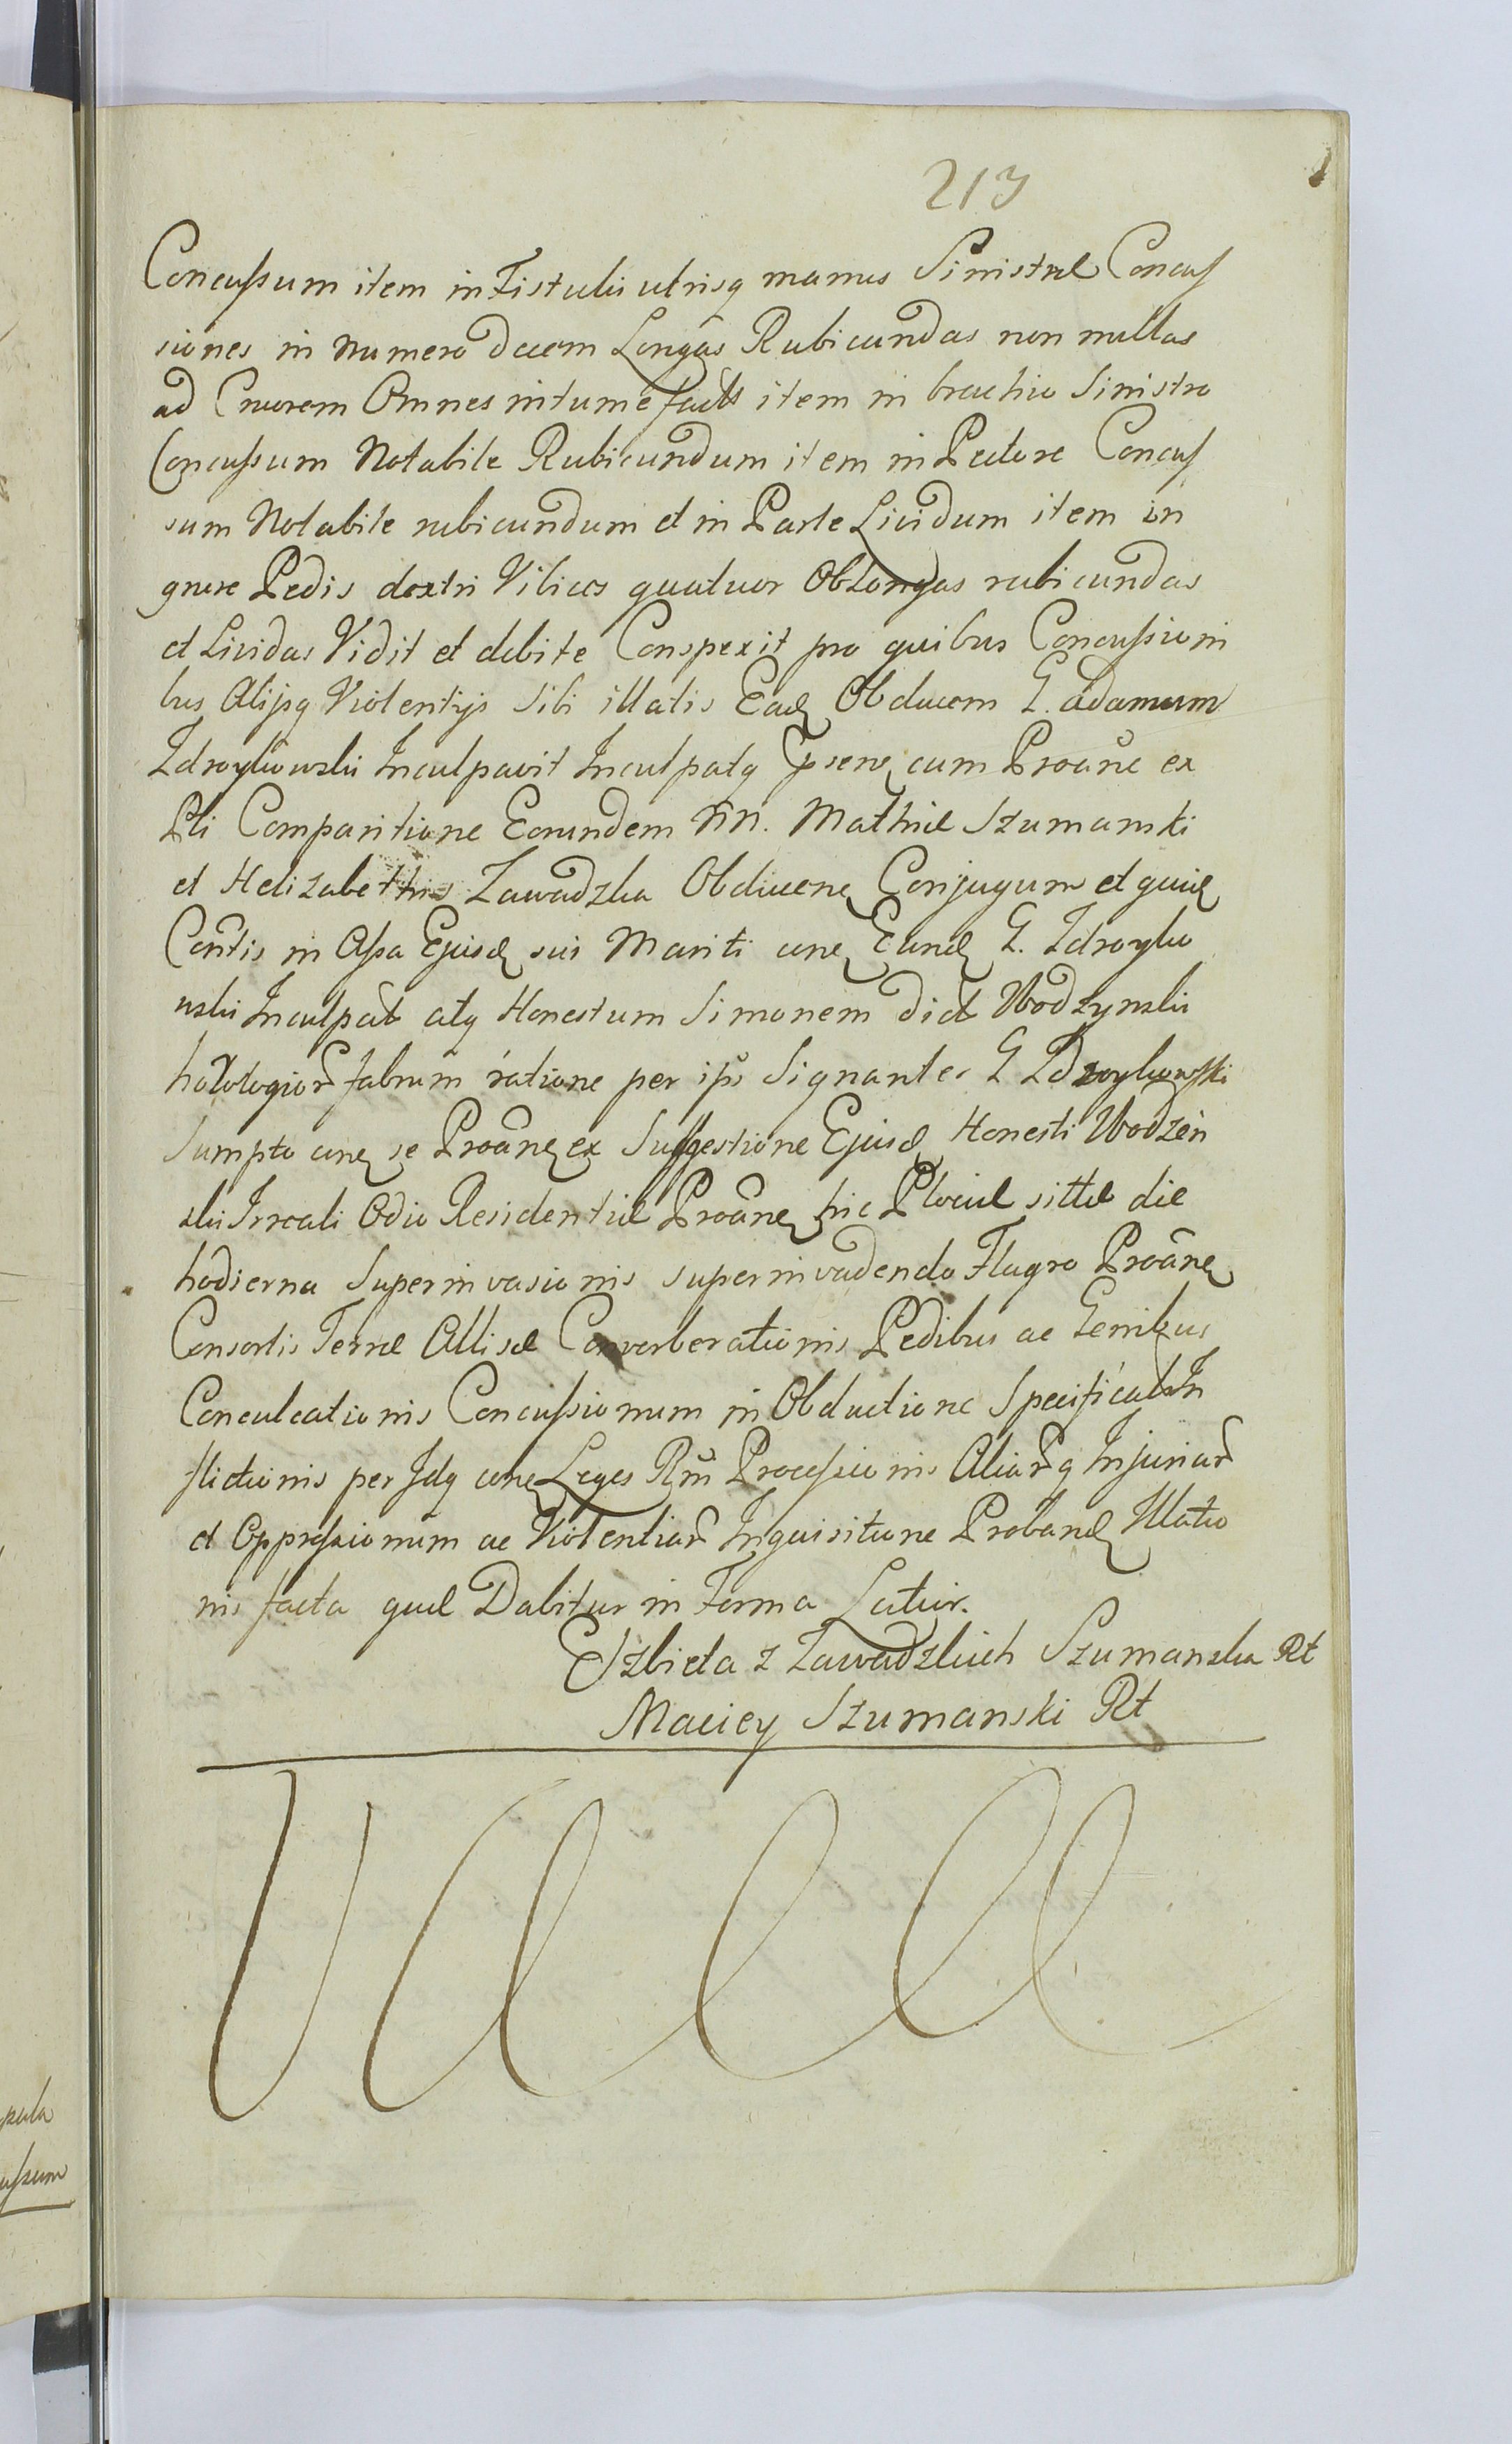 213
Concussum item in Fistulis utrisq manus Sinistræ Concus
siones in numero decem Longas Rubicundas non nullas
ad Cruorem Omnes intumefactas item in brachio Sinistro
Concussum Notabile Rubicundum item in Pectore Concus
sum Notabile rubicundum et in Parte Lividum item in
grure Pedis dextri Vibices quatuor Oblongas rubicundas
et Lividas Vidit et debite Conspexit pro quibus Concussioni
bus Alijsq Violentijs Sibi illatis Ead Obducem G. Adamum
Zdroykowski Inculpavit Inculpatq cum Proãne ex
Pti Comparitione Eorundem NN. Mathiæ Szumanski
et Helizabethis Zawadzka Obducene Conjugum et
Contis in Assa Ejusd sui Mariti cone Eund G. Zdroyko
wski Inculpat atq Honestum Simonem dict Wodzynski
horologior fabrum ratione per ips Signanter G Zdroykowski
Sumpto cone se Proãne ex Suggestione Ejusd Honesti Wodzen
ski Irreali Odio Residentiæ Proãne hic Plociæ sittæ die
hodierna Superinvasionis superinvadendo Flagro Proãne
Consortis Terræ Allisæ Converberationis Pedibus ac Genibus
Conculcationis Concussionum in Obductione Specificat In
flictionis per Idq cone Leges Rni Processionis Aliarq Injuriar
et Oppressionum ac Violentiar Inquisitione Proband Illatio
nis facta quæ Dabitur in Forma Latior.
Elzbieta z Zawadzkich Szumanska Rt
Maciey Szumanski Rt
pula
ussum